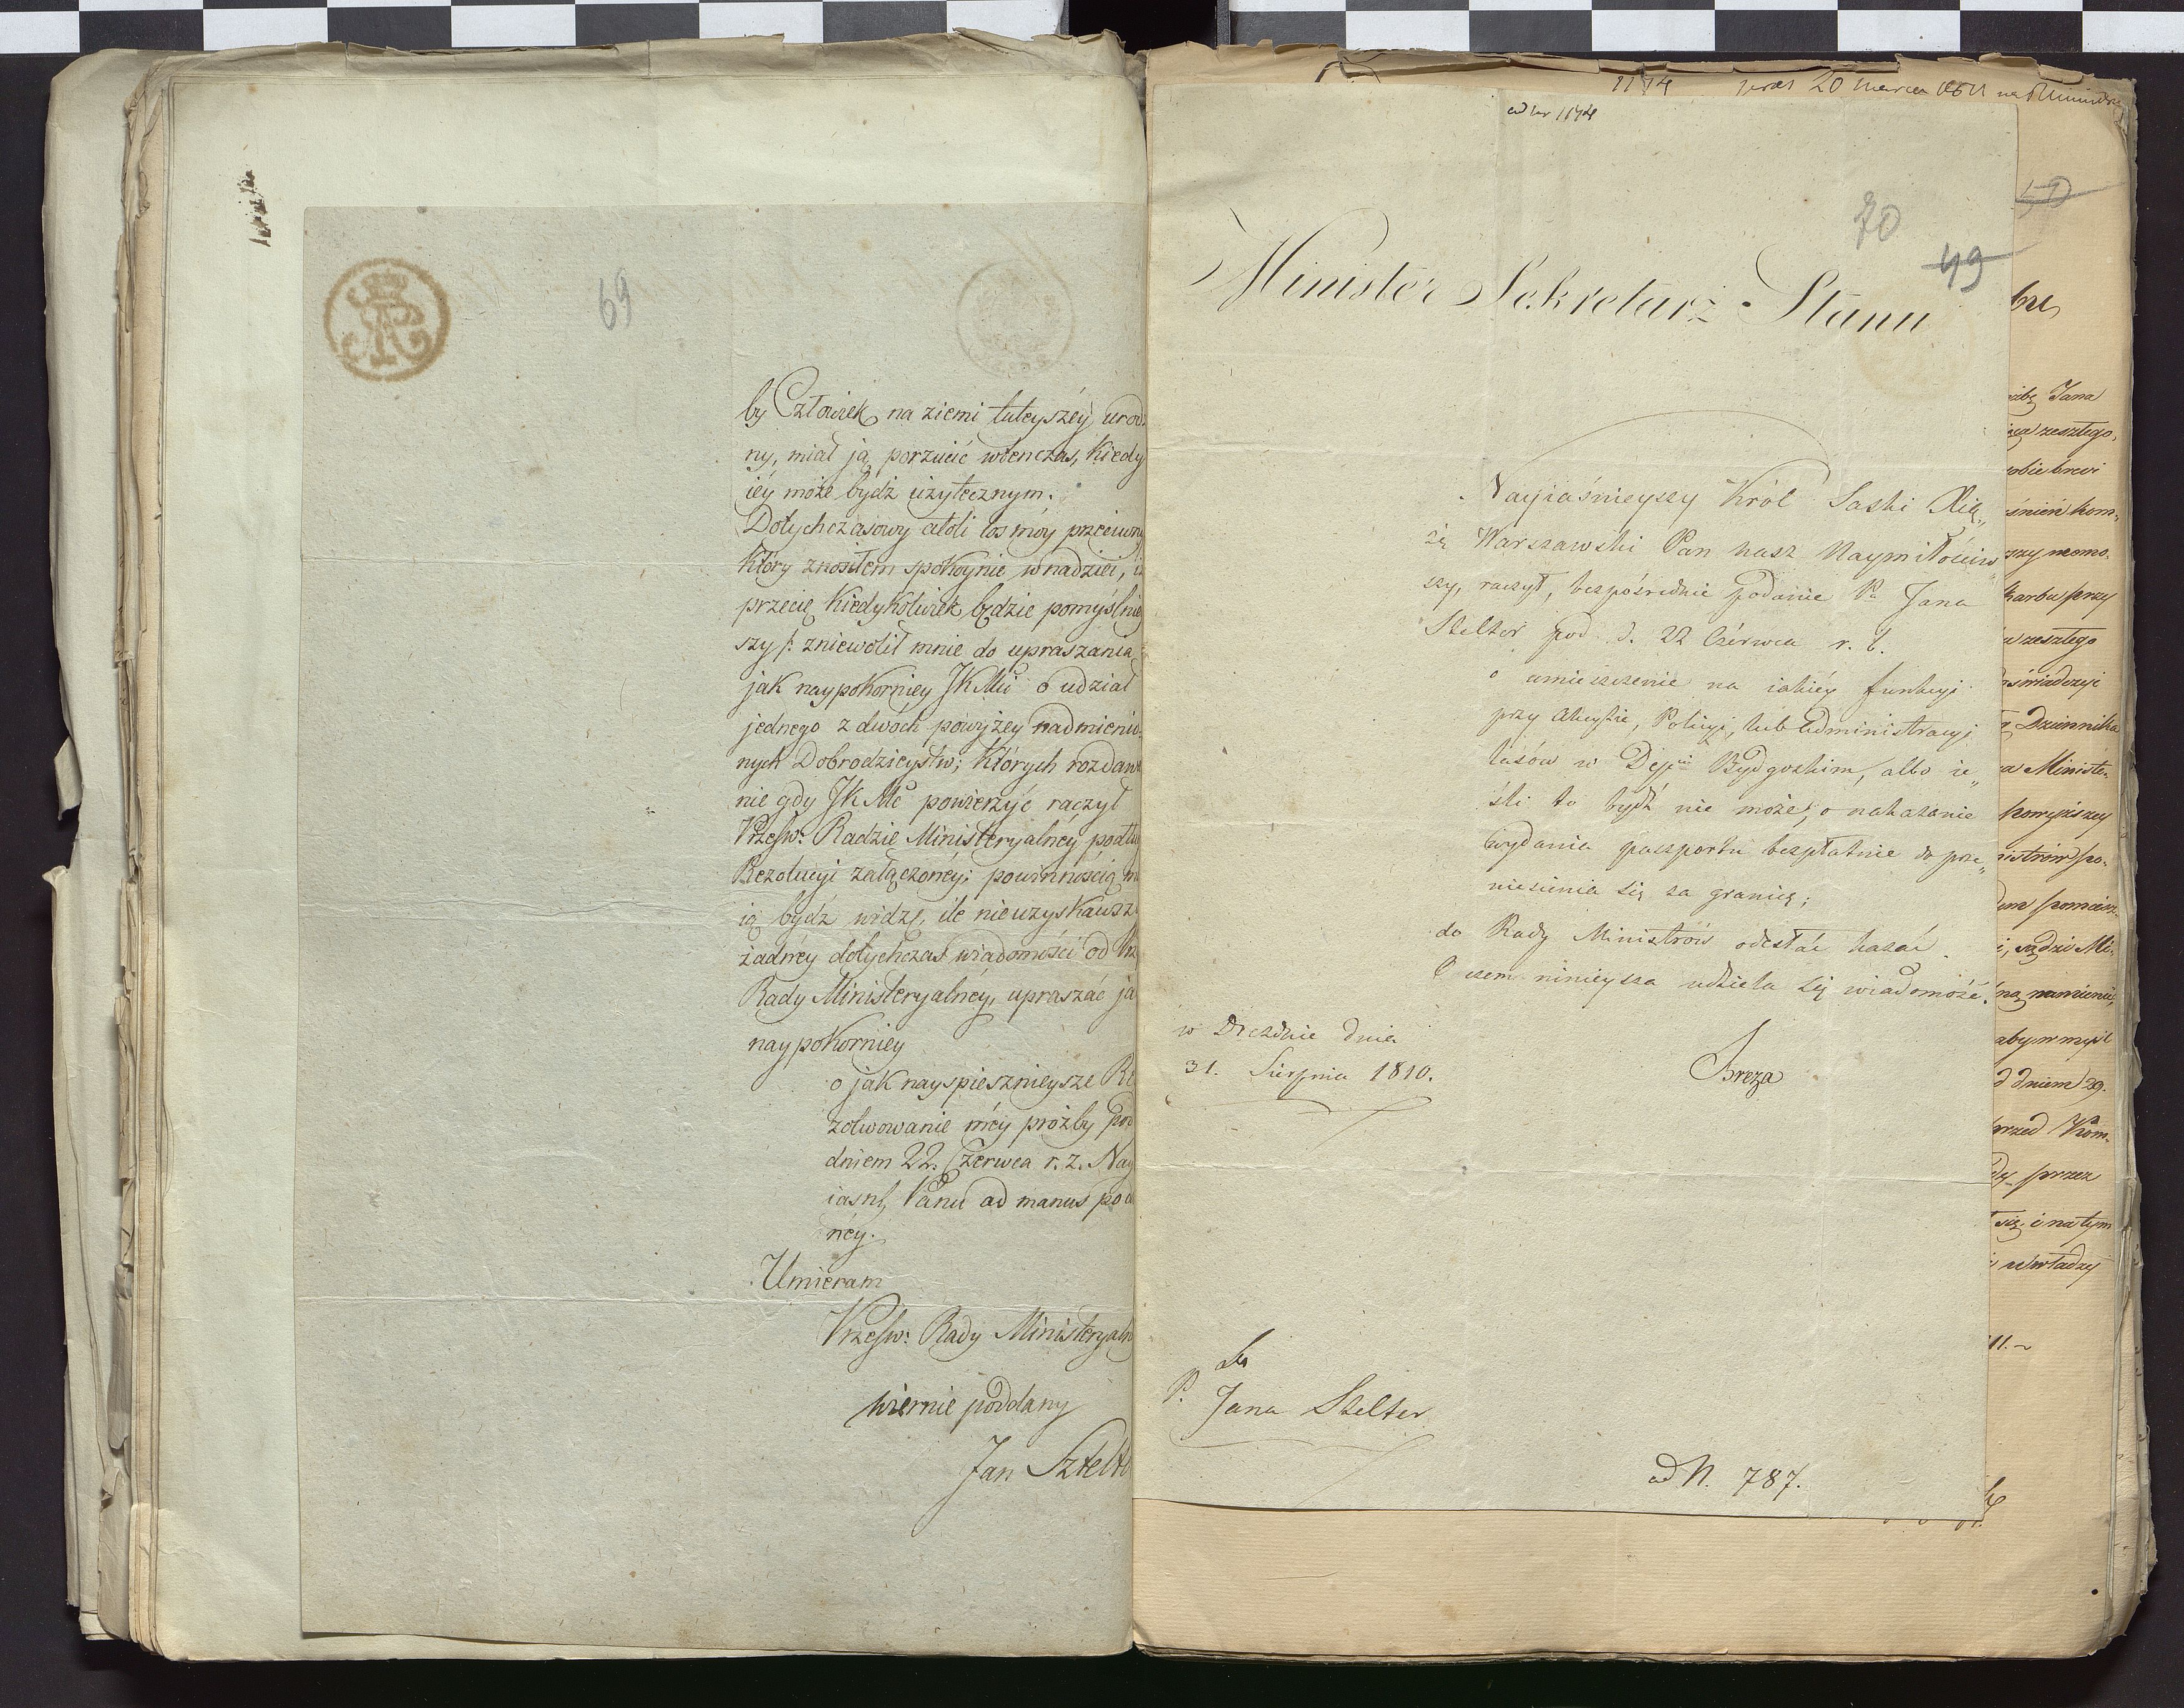 69
by Człowiek na ziemi tuteyszéy urod
ny, miał ją porzucić wtenczas, kiedy
iéy może bydź użytecznym.
Dotychczasowy atoli los móy przeciwny
który znosiłem spokoynie w nadziei, iż
przecię kiedykolwiek będzie pomyślniey
szy /: zniewolił mnie do upraszania
jak naypokorniey JKMci o udział
jednego z dwóch powyżey nadmienio
nych Dobrodzieystw; których rozdawa
nie gdy JKMć powierzyć raczył
Prześw: Radzie Ministeryalnéy podług
Rezolucyi załączonéy; powinnością m
ią bydź widzę, ile nieuzyskawszy
żadnéy dotychczas wiadomości od Prz
Rady Ministeryalnéy, upraszać ja
naypokorniey
o jak nayspiesznieysze Re
zolwowanie méy prożby pod
dniem 22. Czerwca r. z. Nay
iaśn: Panu ad manus poda
néy.
Umieram
Prześw: Rady Ministeryaln
wiernie poddany
Jan Sztelt
ad nr 1174
70
49
Minister Sekretarz Stanu
Nayiaśnieyszy Król Saski Xią„
żę Warszawski Pan nasz Naymiłościw„
szy, raczył, bezpośrednie podanie Pa Jana
Stelter pod d. 22 Czérwca r. b.
o umieszczenie na iakiéy funkcyi
przy Akcyzie, Policyi, lub Administracyi
lasów w Depcie Bydgoskim, albo ie„
śli to bydź nie może, o nakazanie
wydania paszportu bezpłatnie do prze„
niesienia się za granicę;
do Rady Ministrów odesłać kazać.
O czem ninieysza udziela się wiadomość.
w Dreznie dnia
31. Sierpnia 1810.
Breza
Do
P. Jana Stelter
ad N. 787.
1174 prez 20 marca 1811 na
50
Jana
zeszłego,
karbu przy
zeszłego
Dziennika
a Ministe„
powyższey
nistrów po„
aby w myśl
d dniem 29.
przed Kom„
przez
się i na tym
11.